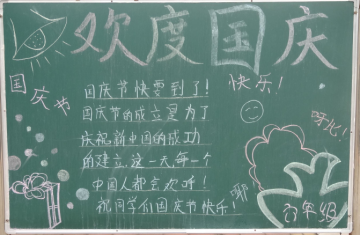 欢度国庆
国庆节
快乐！
国庆节快要到了！
国庆节的成立是为了
庆祝新中国的成功
的建立，这一天每一个
中国人都会欢呼！
祝同学们国庆节快乐！
呀比！
耶
六年级